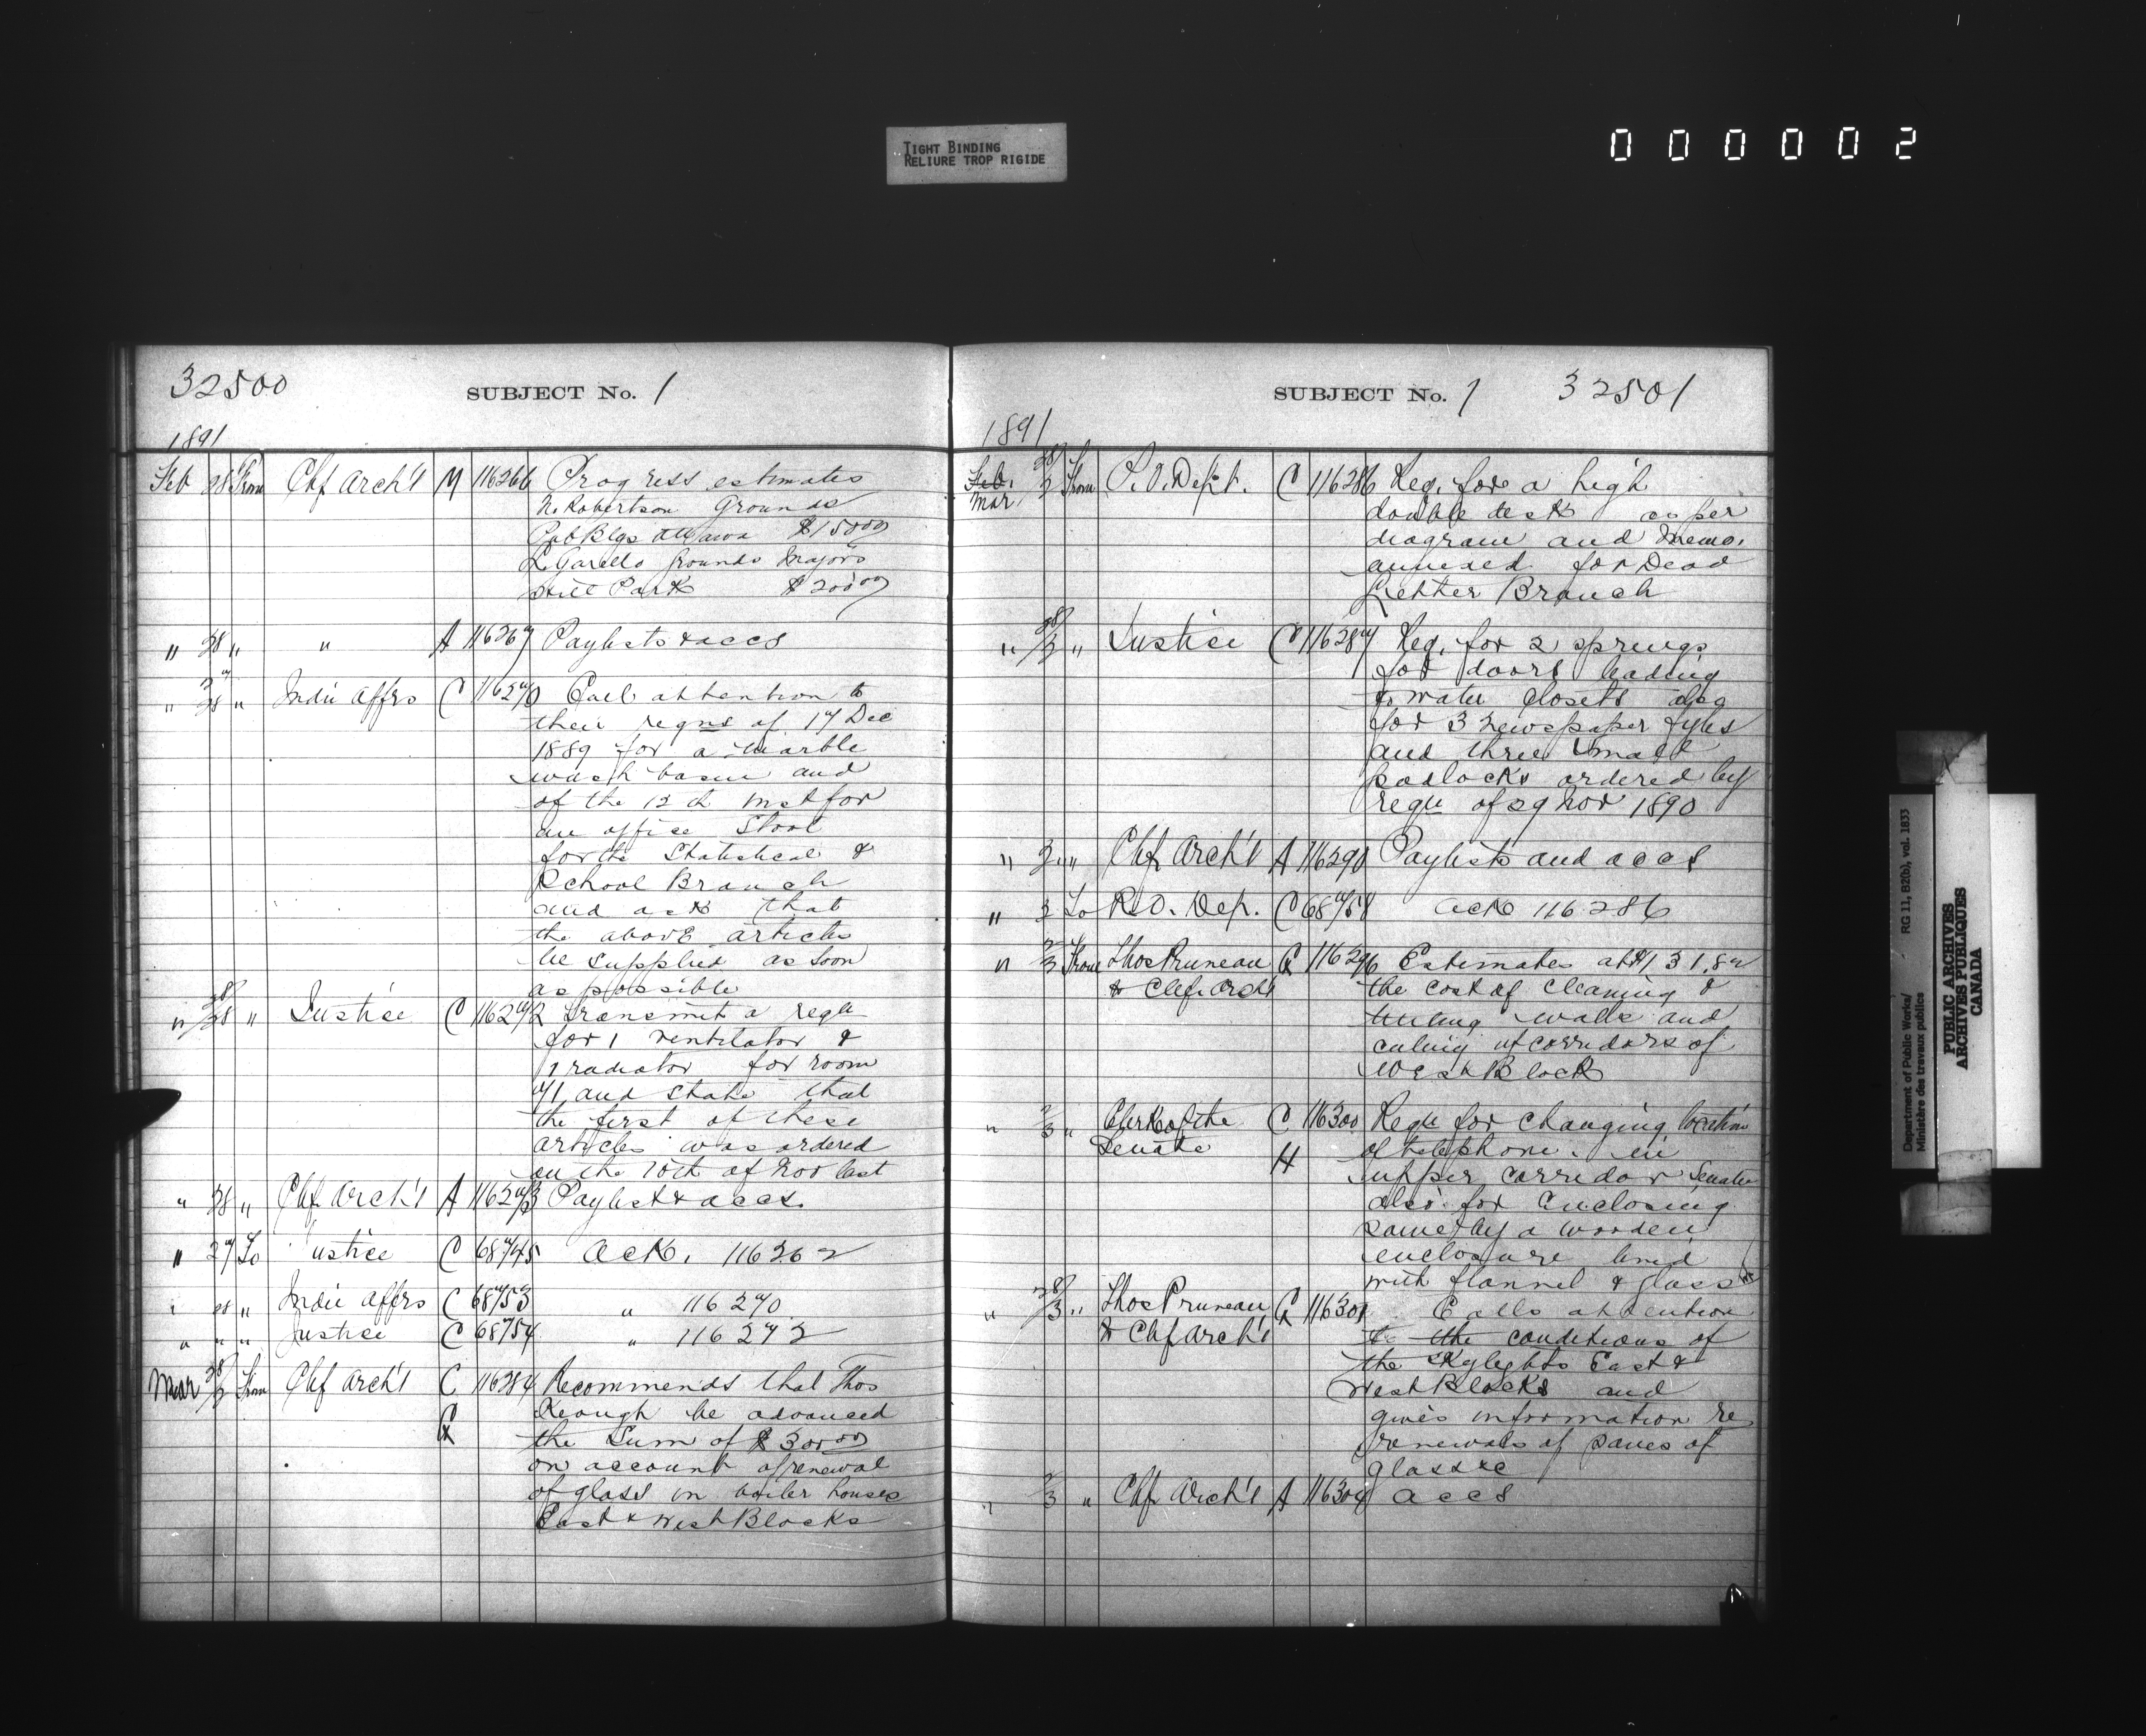 TIGHT BINDING
RELIURE TROP RIGIDE
000002
32500 SUBJECT No. 1
1891
Feb 28 From Chf Arch't M 116266 Progress estimates
N. Robertson Grounds
Pub Blgs Ottawa $150 00
Grounds Majors
Hill Park $200 00
" 28 " " A 116267 Paylists & accs
" 27/28 " Indn Affrs C 116270 Call attention to
their reqns of 17 Dec
1889 for a marble
wash basin and
of the 12th inst for
an office stool
for the Statistical &
School Branch
and ask that
the above articles
be supplied as soon
as possible
" 28/28 " Justice C 116272 Transmit a reqn
for 1 ventilator &
1 radiator for room
71, and state that
the first of these
articles was ordered
on the 10th of Nov last
" 28 " Chf Arch't A 116273 Paylist & accs.
" 27 To Justice C 68745 Ack. 116262
" 28 " Indn Affrs C 68753 " 116270
" " " Justice C 68754 " 116272
Mar 28/2 From Chf Arch't C 116284 Recommends that Thos
G Keough be advanced
the sum of $300 00
on account of renewal
of glass in boiler houses
East & West Blocks
SUBJECT No. 1 32501
1891
Feb. 28/2 From P.O. Dept. C 116286 Req. for a high
Mar double desk as per
diagram and memo.
annexed for Dead
Letter Branch
" 28/2 " Justice C 116287 Req. for 2 springs
for doors leading
to water closets also
for 3 newspaper fyles
and three small
padlocks ordered by
reqn of 29 Nov 1890
" 2 " Chf Arch't A 116290 Paylists and accs
" 2 To P.O. Dep. C 68758 Ack 116286
" 2/3 From Thos Pruneau G 116296 Estimates at $131.82
& Chf Arch't the cost of cleaning &
tinting walls and
ceiling of corridors of
West Block
" 2/3 " Clerk of the C 116300 Reqn for changing location
Senate H of telephone in
upper corridor Senate
also for enclosing
same by a wooden
enclosure lined
with flannel & glass
" 28/3 " Thos Pruneau G 116301 Calls attention
& Chf Arch't to the conditions of
the skylights East &
West Blocks and
gives information re
renewals of panes of
glass &c
" 2/3 " Chf Arch't A 116304 accs
Department of Public Works/ RG 11, B2(b), vol. 1833
Ministère des travaux publics
PUBLIC ARCHIVES
ARCHIVES PUBLIQUES
CANADA